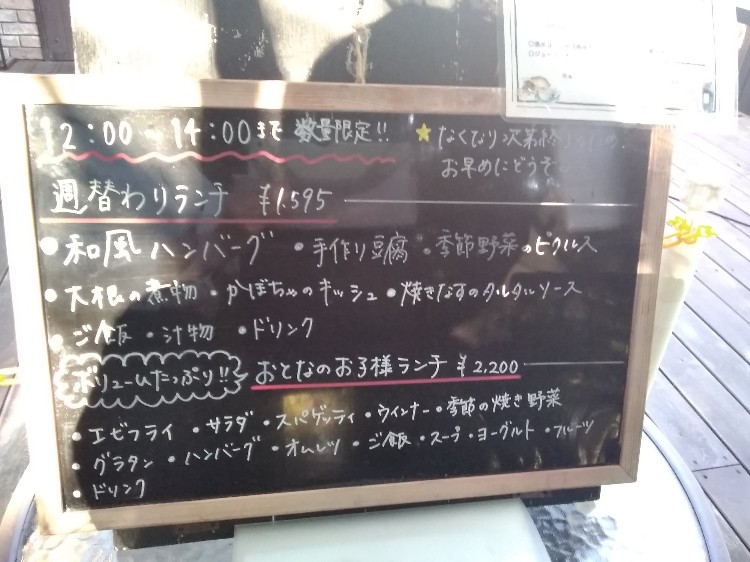 12:00〜14:00まで 数量限定!!
★なくなり次第終了
お早めにどうぞ
週替わりランチ ¥1,595
・和風ハンバーグ ・手作り豆腐 ・季節野菜のピクルス
・大根の煮物 ・かぼちゃのキッシュ ・焼きなすのタルタルソース
・ご飯 ・汁物 ・ドリンク
ボリュームたっぷり!! おとなのお子様ランチ ¥2,200
・エビフライ ・サラダ ・スパゲッティ ・ウインナー ・季節の焼き野菜
・グラタン ・ハンバーグ ・オムレツ ・ご飯 ・スープ ・ヨーグルト ・フルーツ
・ドリンク